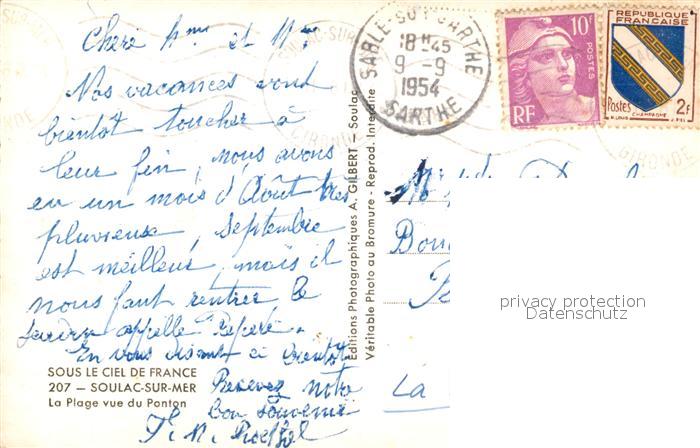 Chère Mme et Mr
Nos vacances vont
bientôt toucher à
leur fin, nous avons
eu un mois d'Août très
pluvieux, Septembre
est meilleur, mais il
nous faut rentrer le
devoir appelle Pépère.
En vous disant à bientôt
Recevez notre
bon souvenir
SOUS LE CIEL DE FRANCE
207 — SOULAC-SUR-MER
La Plage vue du Ponton
Editions Photographiques A. GILBERT - Soulac
Véritable Photo au Bromure - Reprod. Interdite
SABLÉ-SUR-SARTHE
18H45
9 - 9
1954
SARTHE
10F
POSTES
RF
REPUBLIQUE
FRANÇAISE
Postes 2F
CHAMPAGNE
SOULAC-SUR-
GIRONDE
GIRONDE
La
privacy protection
Datenschutz